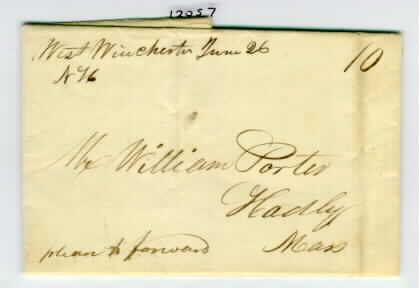 12057
West Winchester June 26
N H
10
Mr William Porter
Hadly
Mass
please to forward